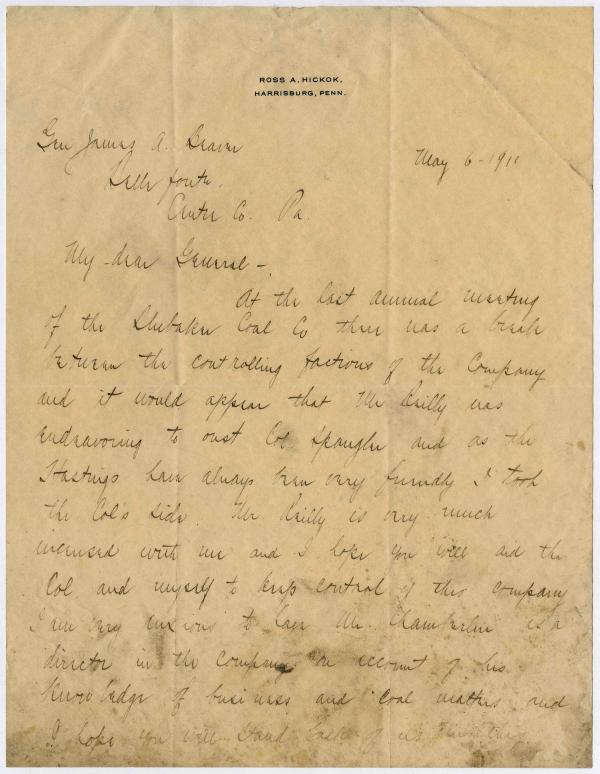 ROSS A. HICKOK,
HARRISBURG, PENN.
Gen James A. Beaver
May 6-1911
Bellefonte.
Center Co. Pa.
My dear General-,
At the last annual meeting
of the Studebaker Coal Co there was a break
between the controlling factions of the Company
and it would appear that Mr Reilly was
endeavoring to oust Col Spangler and as the
Hastings have always been very friendly I took
the Col's side. Mr. Reilly is very much
incensed with me and I hope you will aid the
Col and myself to keep control of this company
I am very anxious to have Mr. Chamberlin as a
director in the company on account of his
knowledge of business and coal matters and
I hope you will stand back of us